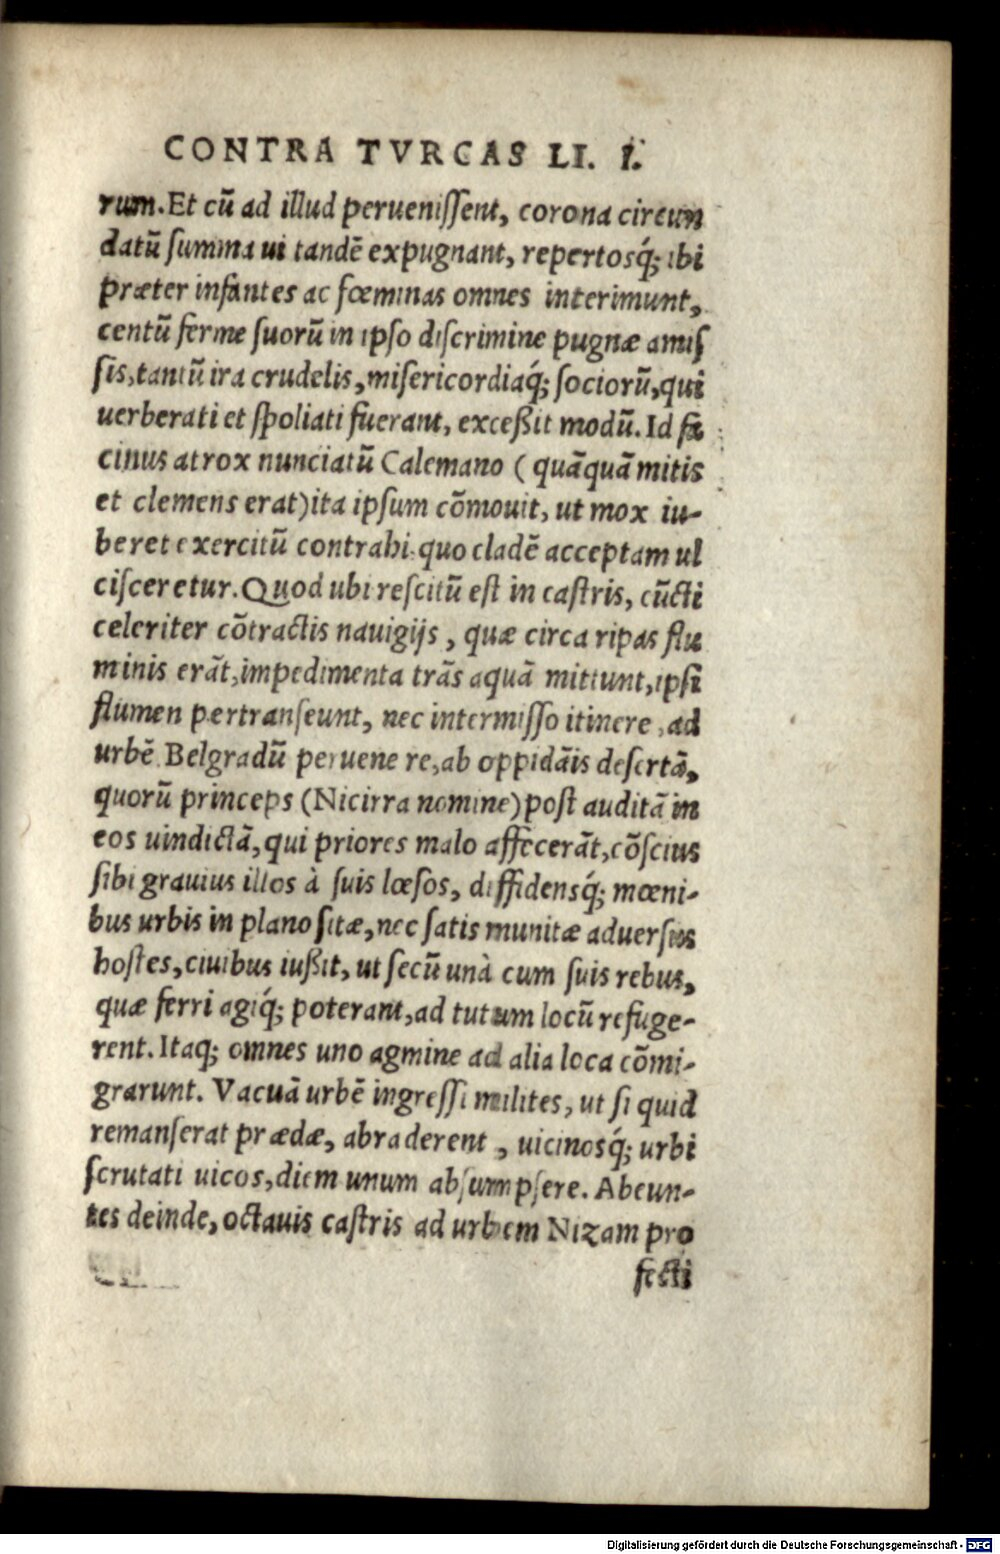 CONTRA TVRCAS LI. I.
rum. Et cũ ad illud perueniſſent, corona circun
datũ ſumma ui tandē expugnant, repertosq́; ibi
præter infantes ac fœminas omnes interimunt,
centũ ferme ſuorũ in ipſo diſcrimine pugnæ amiſ
ſis, tantũ ira crudelis, miſericordiaq́; ſociorũ, qui
uerberati et ſpoliati fuerant, exceßit modũ. Id fa
cinus atrox nunciatũ Calemano ( quāquā mitis
et clemens erat) ita ipſum cōmouit, ut mox iu-
beret exercitũ contrahi quo cladē acceptam ul
ciſceretur. Quod ubi reſcitũ eſt in caſtris, cũcti
celeriter cōtractis nauigijs, quæ circa ripas flu
minis erāt, impedimenta trās aquā mittunt, ipſi
flumen pertranſeunt, nec intermiſſo itinere, ad
urbē Belgradũ peruene re, ab oppidāis deſertā,
quorũ princeps (Nicirra nomine) poſt auditā in
eos uindictā, qui priores malo affecerāt, cōſcius
ſibi grauius illos à ſuis læſos, diffidensq́; mœni-
bus urbis in plano ſitæ, nec ſatis munitæ aduerſus
hoſtes, ciuibus iußit, ut ſecũ unà cum ſuis rebus,
quæ ferri agiq́; poterant, ad tutum locũ refuge-
rent. Itaq; omnes uno agmine ad alia loca cōmi-
grarunt. Vacuā urbē ingreſſi milites, ut ſi quid
remanſerat prædæ, abraderent, uicinosq́; urbi
ſcrutati uicos, diem unum abſumpſere. Abeun-
tes deinde, octauis caſtris ad urbem Nizam pro
fecti
Digitalisierung gefördert durch die Deutsche Forschungsgemeinschaft - DFG